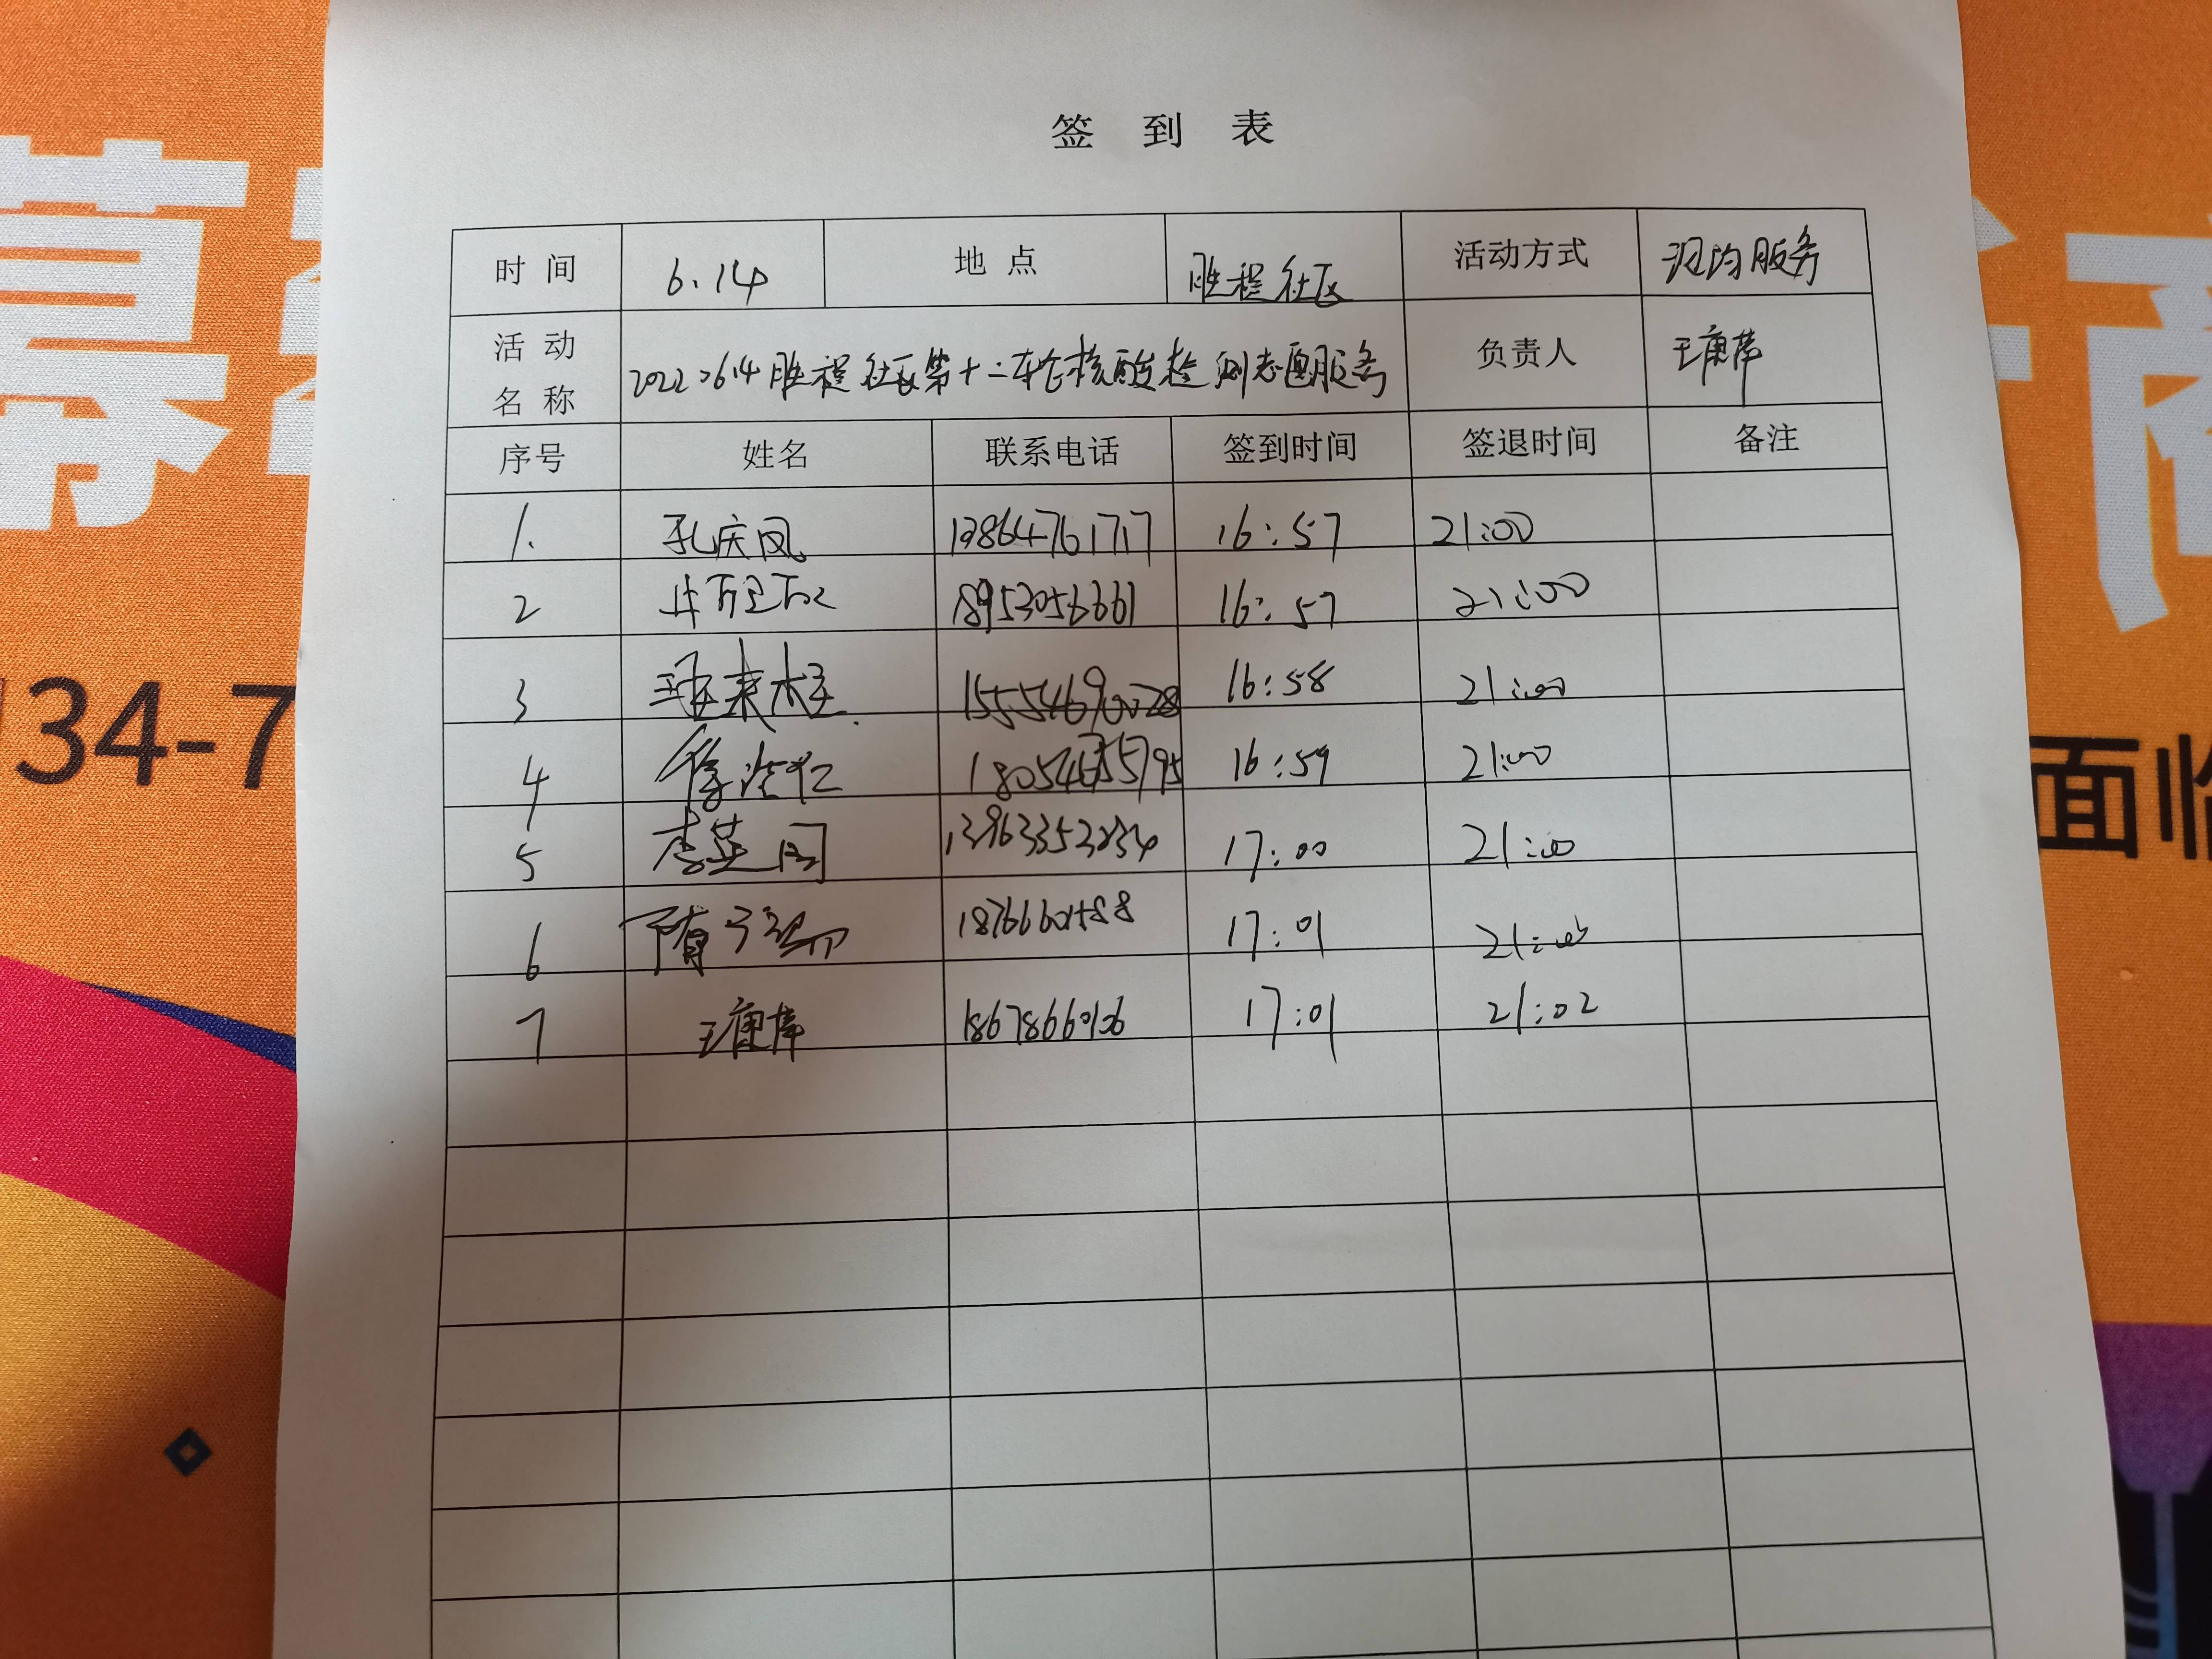 签 到 表
时 间 6.14 地 点 胜程社区 活动方式 现场服务
活 动 名 称 20220614胜程社区第十二轮核酸检测志愿服务 负责人 王康
序号 姓名 联系电话 签到时间 签退时间 备注
1. 孔庆凤 13864761717 16:57 21:00
2 18953056661 16:57 21:00
3 15554690028 16:58 21:00
4 徐 16:59 21:00
5 李英 13963353234 17:00 21:00
6 隋 17:01 21:00
7 王康 18678660106 17:01 21:02
幕
134-7
商
面临